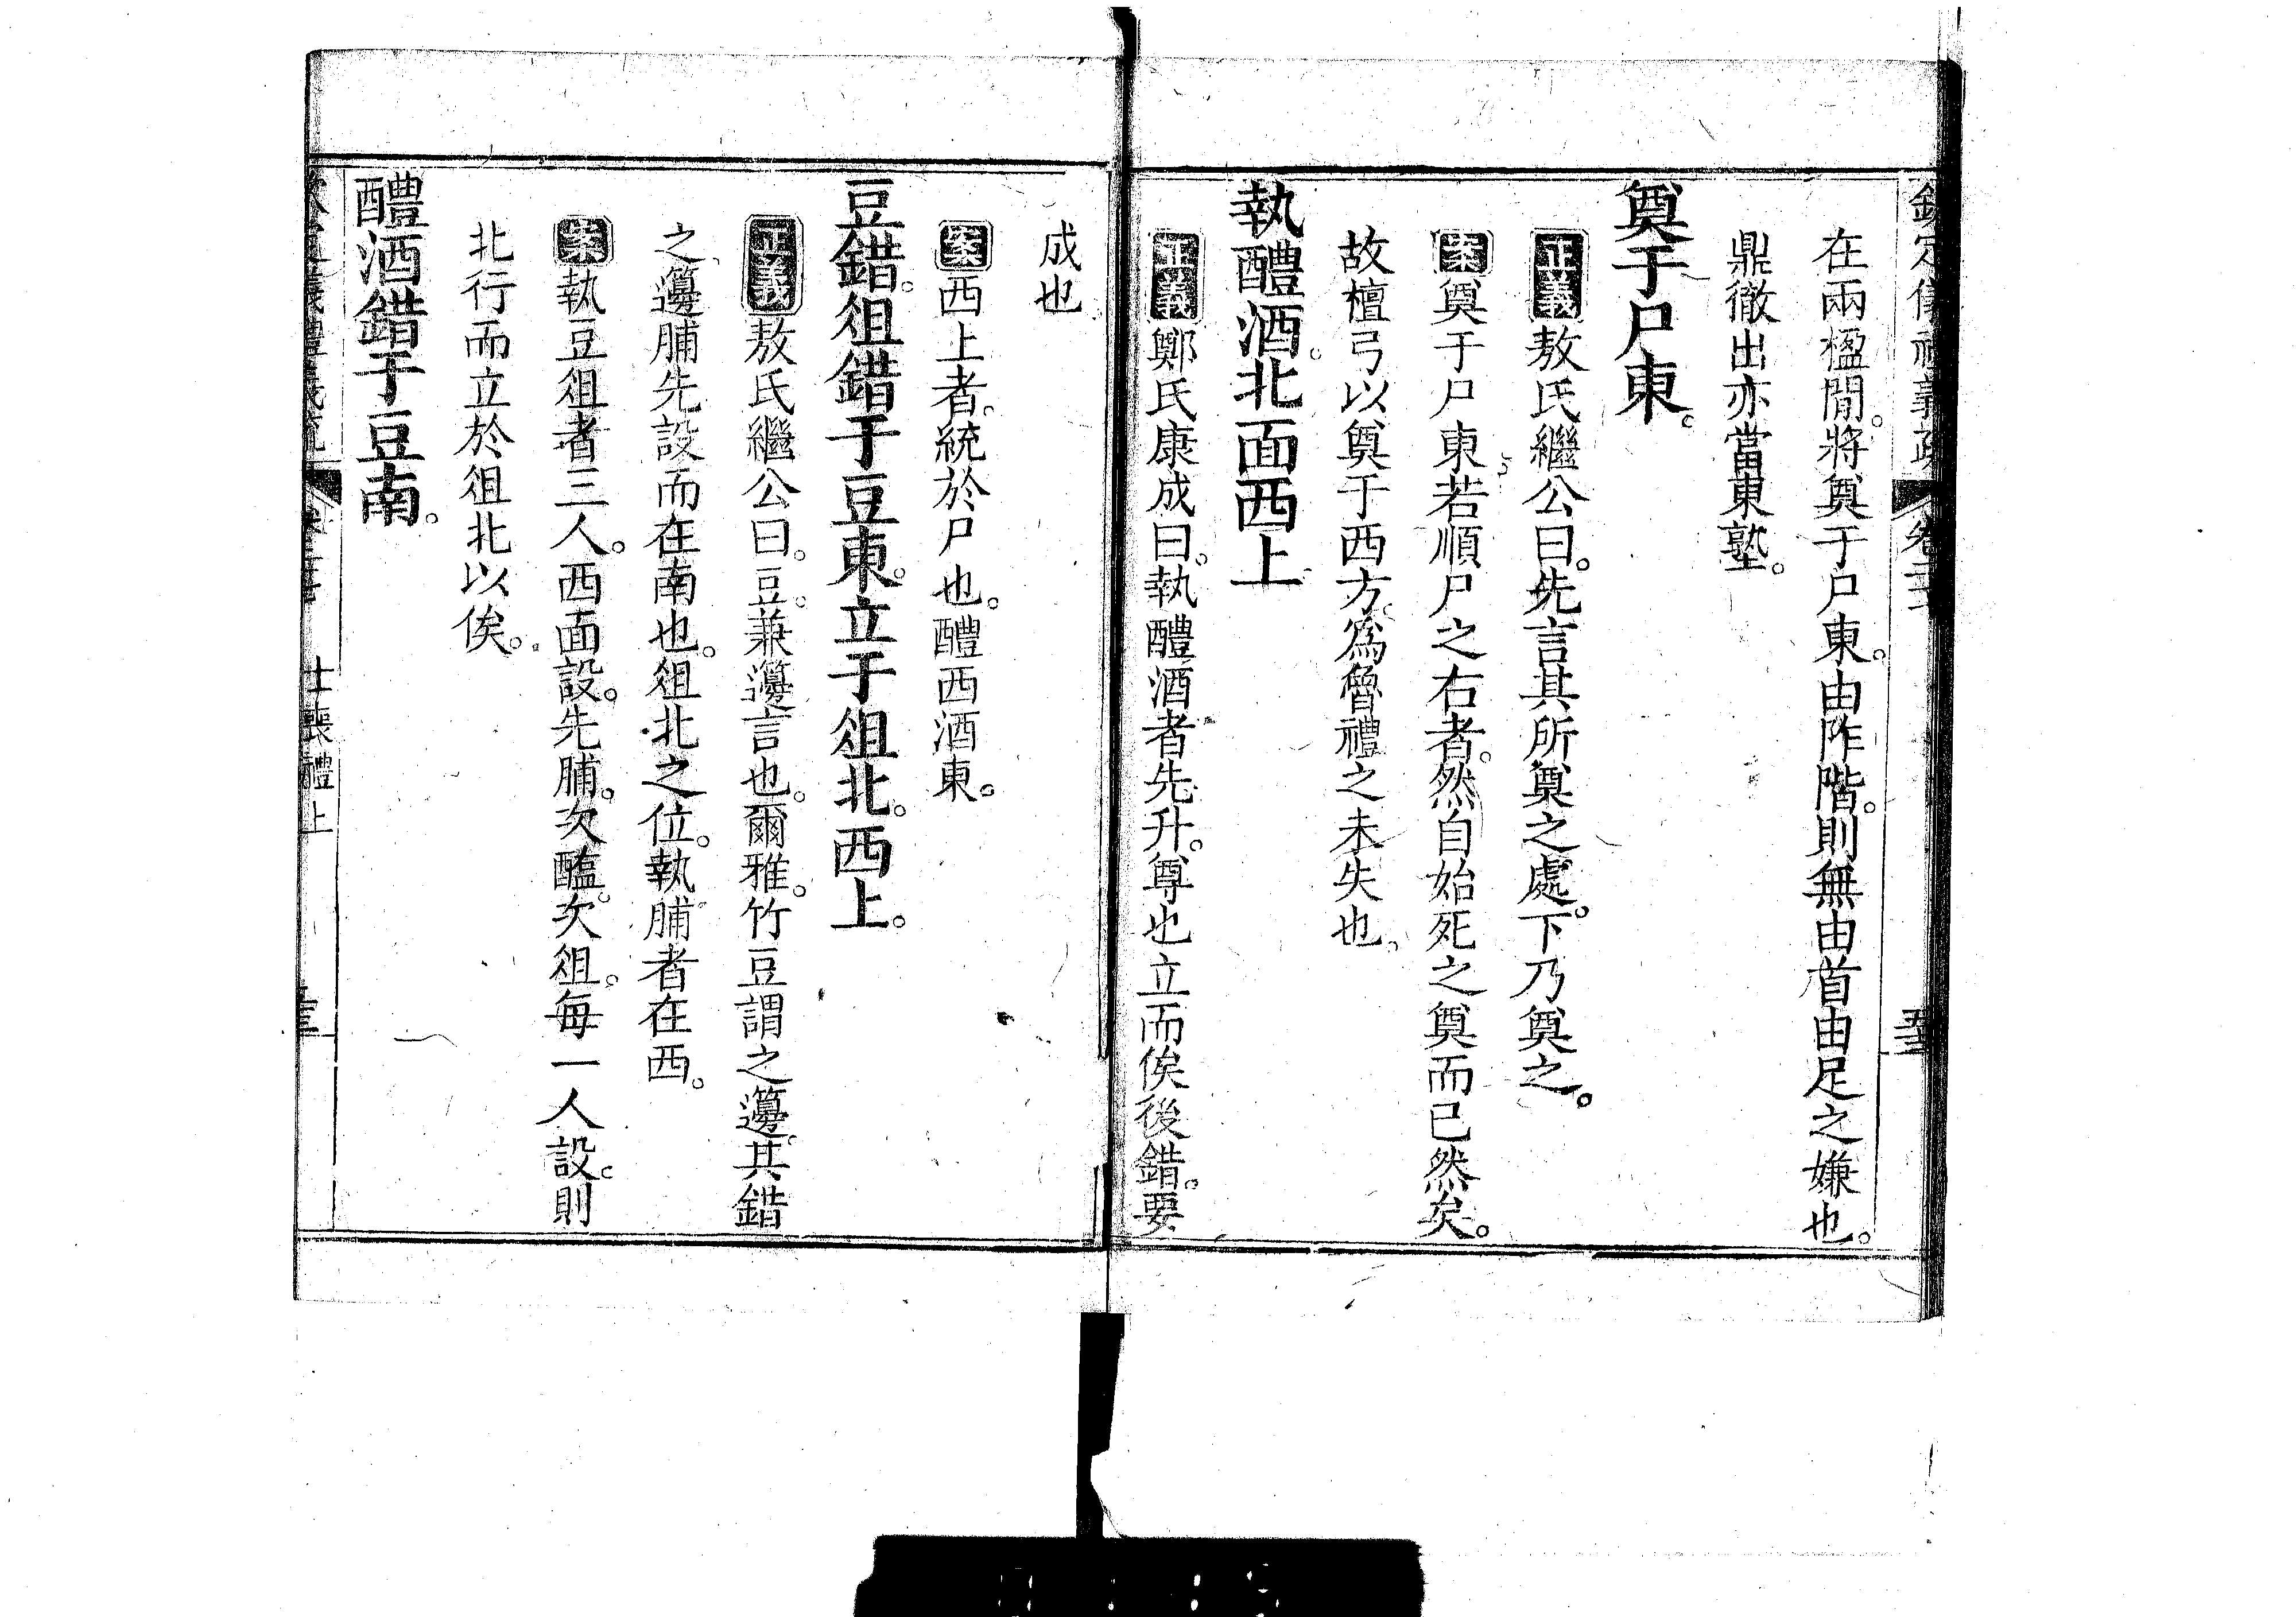 在兩楹閒。將奠于尸東。由阼階。則無由首由足之嫌也。
鼎徹出亦當東塾。
奠于尸東。
正義敖氏繼公曰。先言其所奠之處。下乃奠之。
案奠于尸東若順尸之右者。然自始死之奠而已然矣。
故檀弓以奠于西方。為魯禮之未失也。
執醴酒。北面西上
正義鄭氏康成曰。執醴酒者先升。尊也立而俟後錯。要
成也
案西上者。統於尸也。醴西酒東。
豆錯。俎錯于豆東。立于俎北。西上。
正義敖氏繼公曰。豆兼籩言也。爾雅。竹豆謂之籩。其錯
之籩脯先設而在南也。俎北之位。執脯者在西。
案執豆俎者三人。西面設。先脯。次醢。次俎。每一人設。則
北行而立於俎北以俟。
醴酒錯于豆南。
士喪禮上